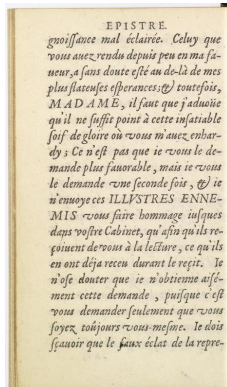 EPISTRE.
gnoiſſance mal éclairée. Celuy que
vous auez rendu depuis peu en ma fa-
ueur, a ſans doute eſté au-delà de mes
plus flateuſes eſperances; & toutefois,
MADAME, il faut que j'aduoüe
qu'il ne ſuffit point à cette inſatiable
ſoif de gloire où vous m'auez enhar-
dy; Ce n'eſt pas que ie vous le de-
mande plus fauorable, mais ie vous
le demande vne ſeconde fois, & ie
n'enuoye ces ILLVSTRES ENNE-
MIS vous faire hommage iuſques
dans voſtre Cabinet, qu'afin qu'ils re-
çoiuent de vous à la lecture, ce qu'ils
en ont déja receu durant le recit. Ie
n'oſe douter que ie n'obtienne aiſé-
ment cette demande, puiſque c'eſt
vous demander ſeulement que vous
ſoyez toûjours vous-meſme. Ie dois
ſçauoir que le faux éclat de la repre-